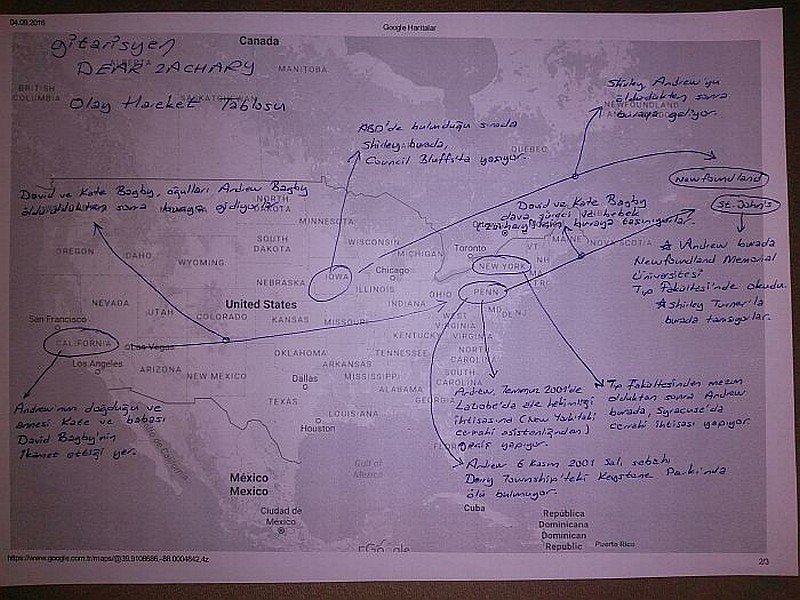 04.09.2016
Google Haritalar
gitarisyen
DEAR ZACHARY
Olay Hareket Tablosu
Canada
ALBERTA
MANITOBA
BRITISH
COLUMBIA
SASKATCHEWAN
ABD'de bulunduğu sırada
Shirley burada,
Council Bluffs'ta yaşıyor.
Shirley, Andrew'yu
öldürdükten sonra
buraya geliyor.
NEWFOUNDLAND
QUEBEC
Newfoundland
St. John's
David ve Kate Bagby, oğulları Andrew Bagby
öldürüldükten sonra buraya gidiyorlar.
David ve Kate Bagby
dava süreci ve bebek
buraya taşınıyorlar.
★ Andrew burada
Newfoundland Memorial
Üniversitesi
Tıp Fakültesi'nde okudu.
★ Shirley Turner'la
burada tanışıyorlar.
NORTH
DAKOTA
MINNESOTA
SOUTH
DAKOTA
WISCONSIN
MICHIGAN
Toronto
VT
NH
MAINE
NOVA SCOTIA
OREGON
IDAHO
WYOMING
NEBRASKA
IOWA
Chicago
ILLINOIS
INDIANA
OHIO
PENN
NEW YORK
MA
CT RI
MD DE NJ
NEVADA
UTAH
COLORADO
United States
KANSAS
MISSOURI
WEST
VIRGINIA
KENTUCKY
VIRGINIA
San Francisco
CALIFORNIA
Las Vegas
Los Angeles
ARIZONA
NEW MEXICO
OKLAHOMA
ARKANSAS
TENNESSEE
NORTH
CAROLINA
SOUTH
CAROLINA
Dallas
MISSISSIPPI
ALABAMA
GEORGIA
TEXAS
LOUISIANA
Houston
FLORIDA
Andrew'nun doğduğu ve
annesi Kate ve babası
David Bagby'nin
ikamet ettiği yer.
Andrew, Temmuz 2001'de
Latrobe'da aile hekimliği
ihtisasına (New York'taki
cerrahi asistanlığından)
geçiş yapıyor.
Tıp Fakültesinden mezun
olduktan sonra Andrew
burada, Syracuse'da
cerrahi ihtisası yapıyor.
Andrew 6 Kasım 2001 Salı sabahı
Derry Township'teki Keystone Parkı'nda
ölü bulunuyor.
Golfo de California
Gulf of
Mexico
México
Mexico
Ciudad de
México
Cuba
República
Dominicana
Dominican
Republic
Puerto Rico
Google
https://www.google.com.tr/maps/@39.9108686,-88.0004642,4z
2/3